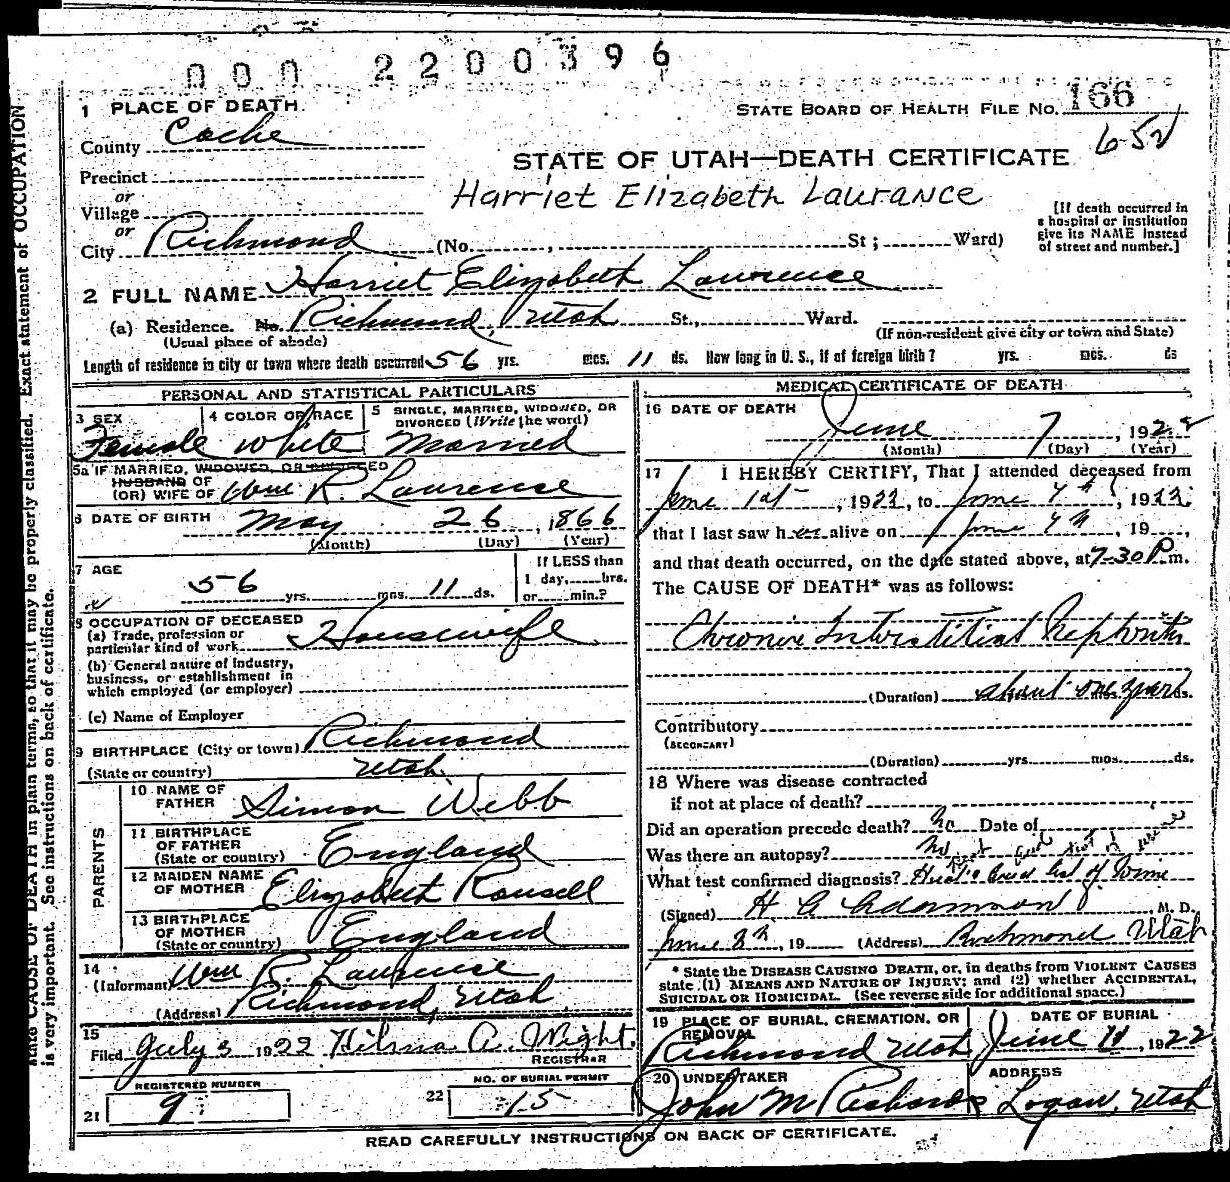 000 2200396
1 PLACE OF DEATH
STATE BOARD OF HEALTH FILE NO. 166
County Cache
6-52
STATE OF UTAH—DEATH CERTIFICATE
Precinct
or
Village
Harriet Elizabeth Laurance
or
City Richmond (No. , St ; Ward)
[If death occurred in
a hospital or institution
give its NAME instead
of street and number.]
2 FULL NAME Harriet Elizabeth Lawrence
(a) Residence. No. Richmond, Utah St., Ward.
(Usual place of abode)
(If non-resident give city or town and State)
Length of residence in city or town where death occurred 56 yrs. mos. 11 ds. How long in U. S., if of foreign birth? yrs. mos. ds
PERSONAL AND STATISTICAL PARTICULARS
3 SEX
Female
4 COLOR OR RACE
White
5 SINGLE, MARRIED, WIDOWED, OR
DIVORCED (Write the word)
Married
5a IF MARRIED, WIDOWED, OR DIVORCED
HUSBAND OF
(OR) WIFE OF Wm R. Lawrence
6 DATE OF BIRTH May 26, 1866
(Month) (Day) (Year)
7 AGE
56 yrs. mos. 11 ds.
If LESS than
1 day, hrs.
or min.?
8 OCCUPATION OF DECEASED
(a) Trade, profession or
particular kind of work Housewife
(b) General nature of industry,
business, or establishment in
which employed (or employer)
(c) Name of Employer
9 BIRTHPLACE (City or town) Richmond
(State or country) Utah
PARENTS
10 NAME OF
FATHER Simon Webb
11 BIRTHPLACE
OF FATHER
(State or country) England
12 MAIDEN NAME
OF MOTHER Elizabeth Rousell
13 BIRTHPLACE
OF MOTHER
(State or country) England
14
(Informant) Wm R. Lawrence
(Address) Richmond, Utah
15
Filed July 3 1922 Hilma A. Wight.
REGISTRAR
REGISTERED NUMBER
21 9
NO. OF BURIAL PERMIT
22 15
MEDICAL CERTIFICATE OF DEATH
16 DATE OF DEATH
June 7, 1922
(Month) (Day) (Year)
17 I HEREBY CERTIFY, That I attended deceased from
June 1st, 1922, to June 7th, 1922,
that I last saw her alive on June 7th, 19
and that death occurred, on the date stated above, at 7-30 P. m.
The CAUSE OF DEATH* was as follows:
Chronic Interstitial Nephritis
(Duration) about one year ds.
Contributory
(SECONDARY)
(Duration) yrs. mos. ds.
18 Where was disease contracted
if not at place of death?
Did an operation precede death? No Date of
Was there an autopsy? No
What test confirmed diagnosis?
(Signed) H. A. Adamson, M. D.
June 8th, 19 (Address) Richmond Utah
* State the DISEASE CAUSING DEATH, or, in deaths from VIOLENT CAUSES
state (1) MEANS AND NATURE OF INJURY; and (2) whether ACCIDENTAL,
SUICIDAL OR HOMICIDAL. (See reverse side for additional space.)
19 PLACE OF BURIAL, CREMATION, OR
REMOVAL
Richmond Utah
DATE OF BURIAL
June 11, 1922
20 UNDERTAKER
John M Richards
ADDRESS
Logan, Utah
READ CAREFULLY INSTRUCTIONS ON BACK OF CERTIFICATE.
state CAUSE OF DEATH in plain terms, so that it may be properly classified. Exact statement of OCCUPATION
is very important. See instructions on back of certificate.